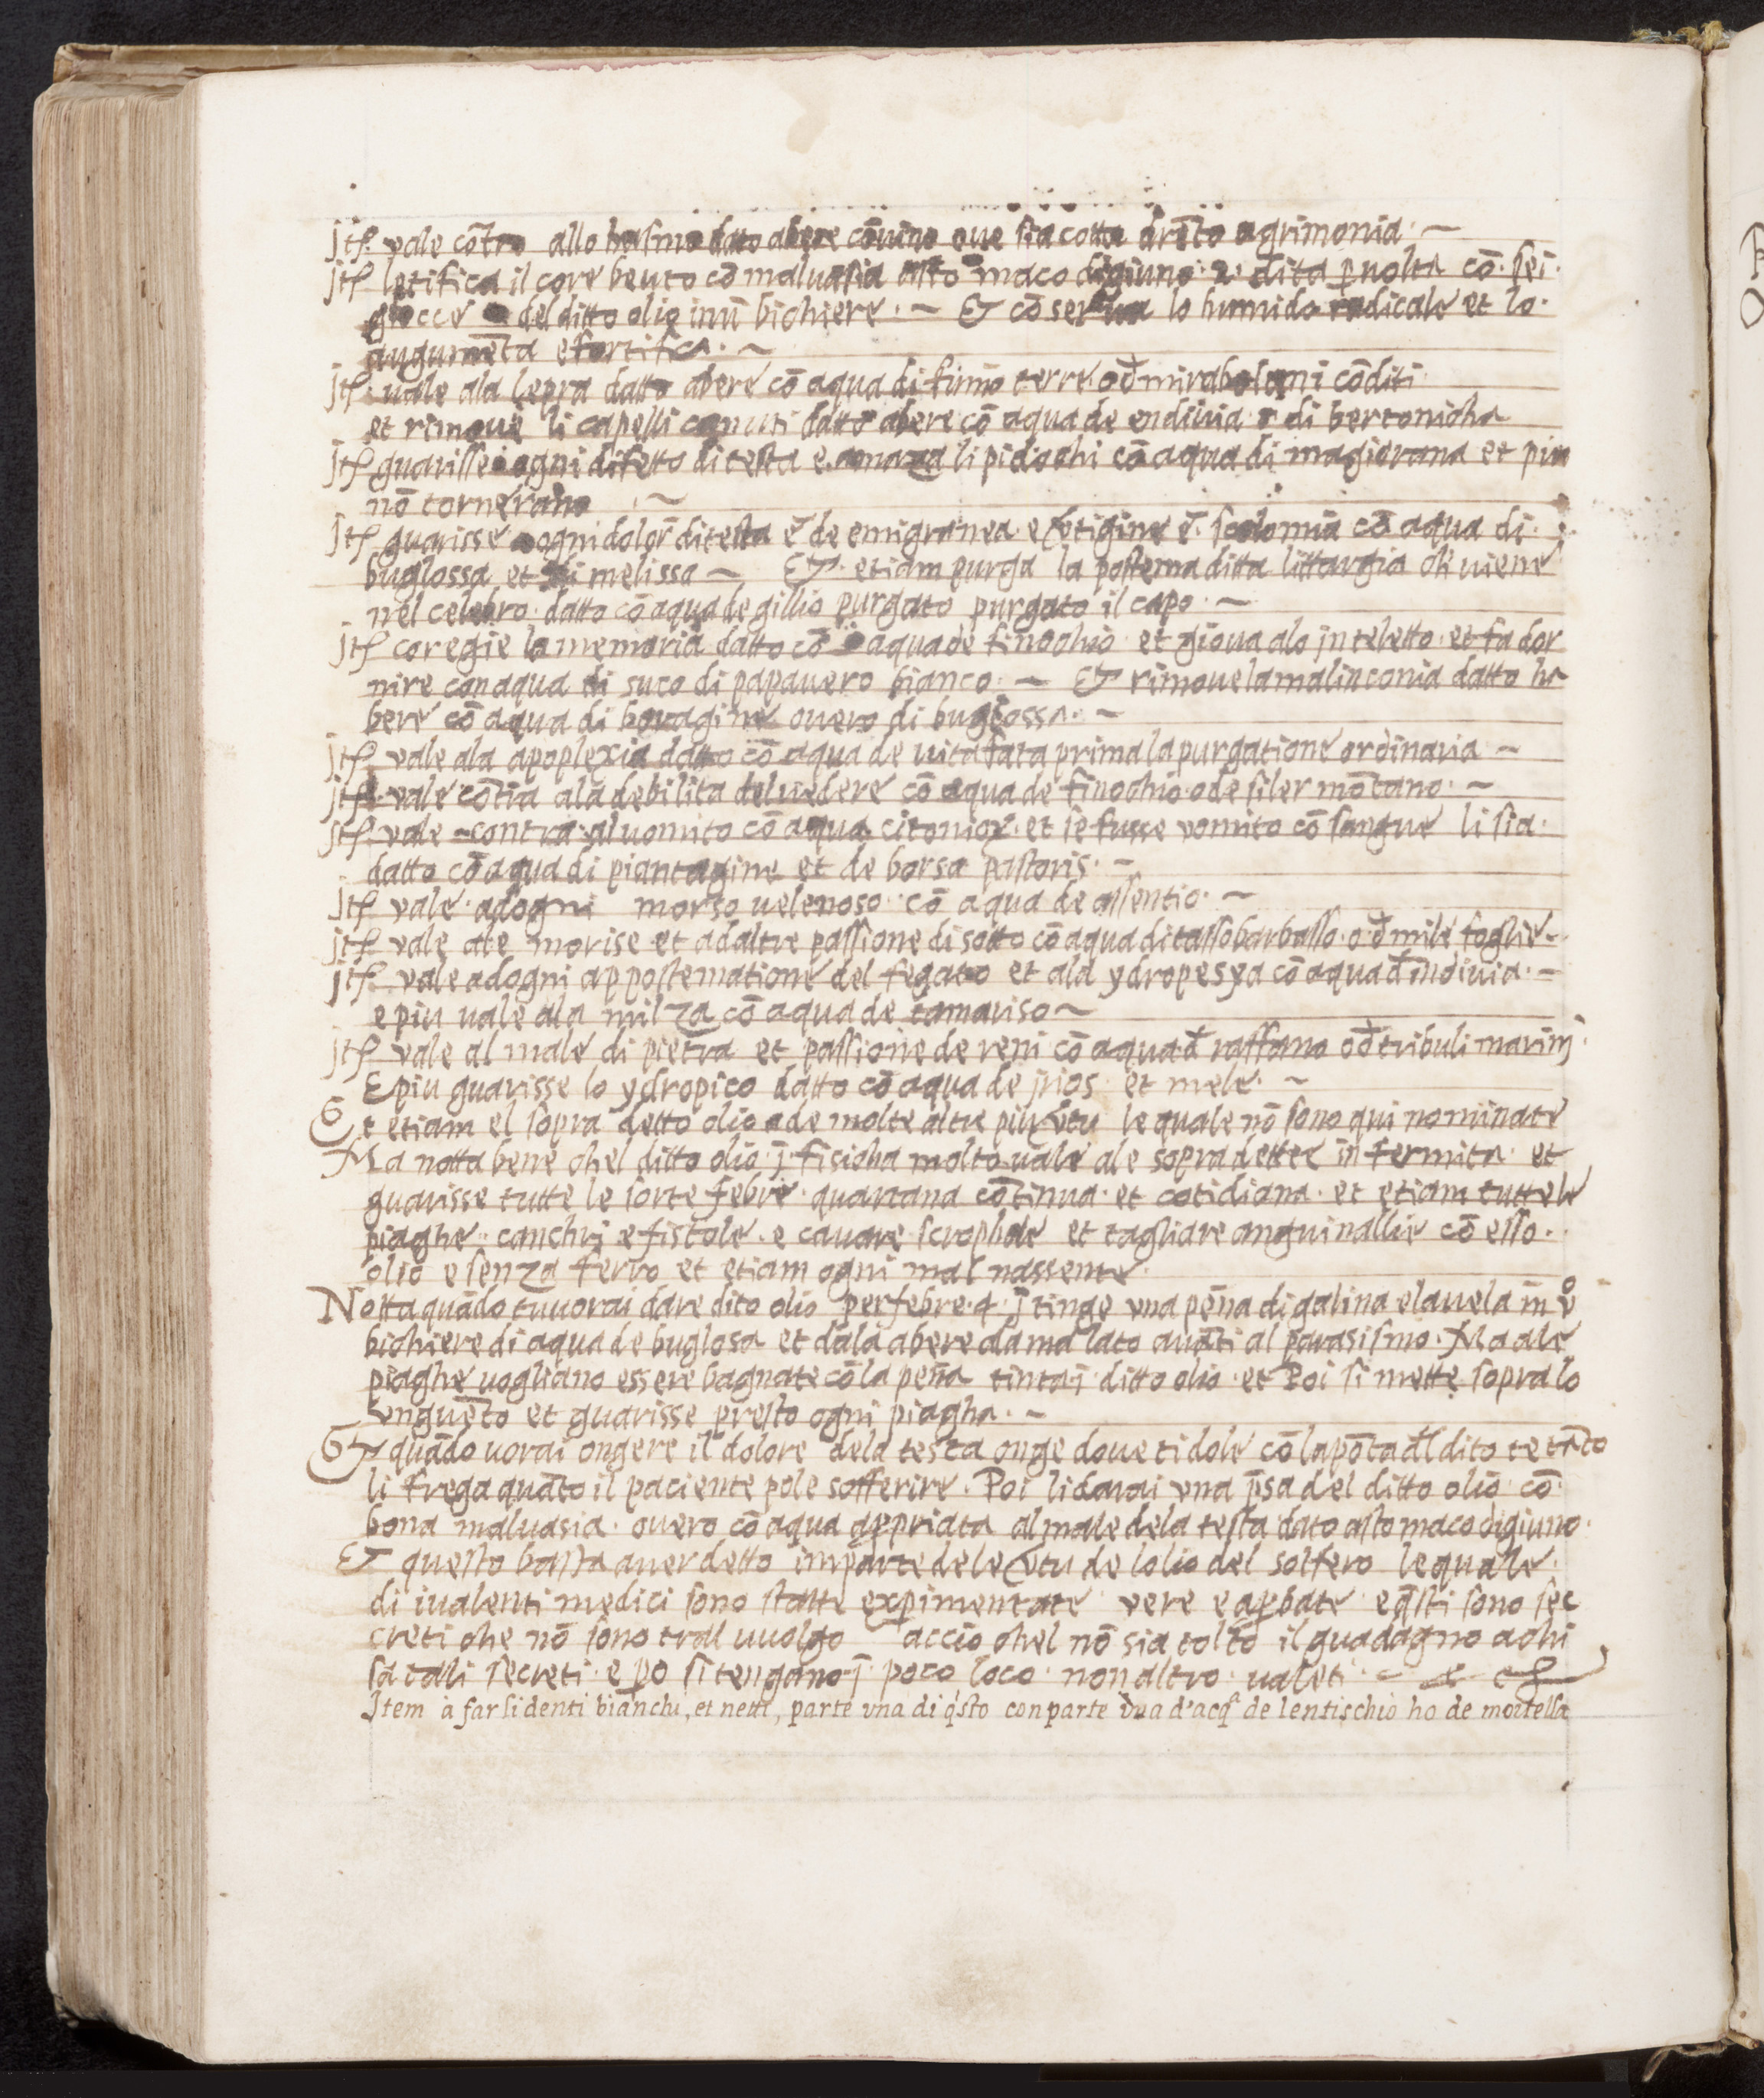 Jtē vale cōtro allo hasmo datto abere cō uino oue sia cotta drēto agrimonia
Jtē letifica il core beuto cō maluasia asto maco digiuno 2 dita p uolta cō sei
giocce del ditto olio inū bichiere · & cōserua lo humido radicale et lo
auguméta e fortifica
Jtē uale ala lepra datto abere cō aqua di fumo terre o đ mirabolani cōditi
et rimoue li capelli canuti datto abere cō aqua de endiuia o di bertonicha
Jtē guarisse ogni difetto di testa e amaza li pidochi cō aqua di magiorana et piu
nō tornerano
Jtē guarisse ogni dolor di testa e de emigranea e uertigine e scotomia cō aqua di
buglossa et di melissa & etiam purga la postema ditta littargia ch uiene
nel celebro datto cō aqua de gillio purgato purgato il capo
Jtē coregie la memoria datto cō aqua de finochio et gioua alo inteletto et fa dor
mire con aqua di suco di papauero bianco & rimoue la malinconia datto ha
bere cō aqua di boragine ouero di buglossa
Jtē vale ala apoplexia datto cō aqua de uita fata prima la purgatione ordinaria
Jtē vale cōtra ala debilita del uedere cō aqua de finochio o de siler mōtano
Jtē vale contra al uomito cō aqua citonioꝝ et se fusse vomito cō sangue li sia
datto cō aqua di piantagine et de borsa pastoris
Jtē vale adogni morso uelenoso cō aqua de assentio
Jtē vale ale morise et adaltre passione di sotto cō aqua di tassobarbasso o đ mile foglie
Jtē vale adogni appostematione del fegato et ala ydropesya cō aqua đ indiuia
e piu uale ala milza cō aqua de tamariso
Jtē vale al male di pietra et passione de reni cō aqua đ raffano o đ tribuli marinj
E piu guarisse lo ydropico datto cō aqua de jrios et mele
Et etiam el sopra detto olio a de molte altre piu vtu le quale nō sono qui nominate
Ma notta bene chel ditto olio j fisicha molto uale ale sopradette infermita et
guarisse tutte le sorte febre quartana cōtinua et cotidiana et etiam tutte le
piaghe canchrj e fistole e cauare scrophole et tagliare anguinallie cō esso
olio e senza ferro et etiam ogni mal nassente
Notta quādo tu uorai dare dito olio per febre 4 j tinge vna pēna di galina e lauela in v°
bichiere di aqua de buglosa et dala abere alamalato auāti al parasismo Ma ale
piaghe uogliano essere bagnate cō la pēna tinta j ditto olio et Poi si mette sopra lo
vnguēto et guarisse presto ogni piagha
Et quādo uorai ongere il dolore dela testa onge doue ti dole cō la pōta đl dito et tāto
li frega quāto il paciente pole sofferire Poi li darai vna p̄sa del ditto olio cō
bona maluasia ouero cō aqua appriata al male dela testa dato astomaco digiuno
Et questo basta auer detto imparte dele vtu de lolio del solfero le quale
di iualenti medici sono statte expimentate vere e apbate e q̄sti sono sec
creti che nō sono tral uuolgo accio chel nō sia tolto il guadagno achi
sa tali secreti e po si tengano j poco loco non altro ualeti
Item à far li denti bianchi, et netti, parte vna di q̄sto con parte vna d'acqª de lentischio ho de mortella